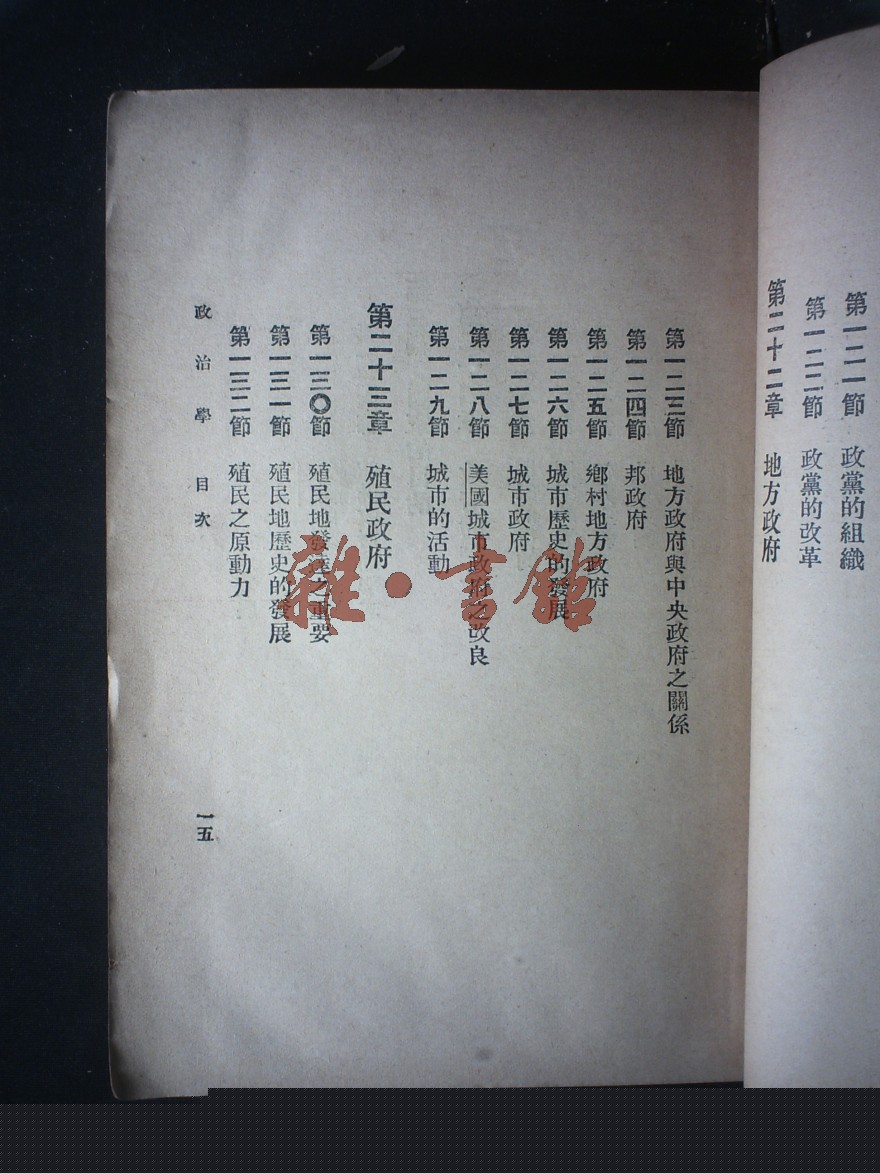 第一二一節 政黨的組織
第一二二節 政黨的改革
第二十二章 地方政府
第一二三節 地方政府與中央政府之關係
第一二四節 邦政府
第一二五節 鄉村地方政府
第一二六節 城市歷史的發展
第一二七節 城市政府
第一二八節 美國城市政府之改良
第一二九節 城市的活動
第二十三章 殖民政府
第一三〇節 殖民地發達之重要
第一三一節 殖民地歷史的發展
第一三二節 殖民之原動力
政治學 目次
一五
雜·書館